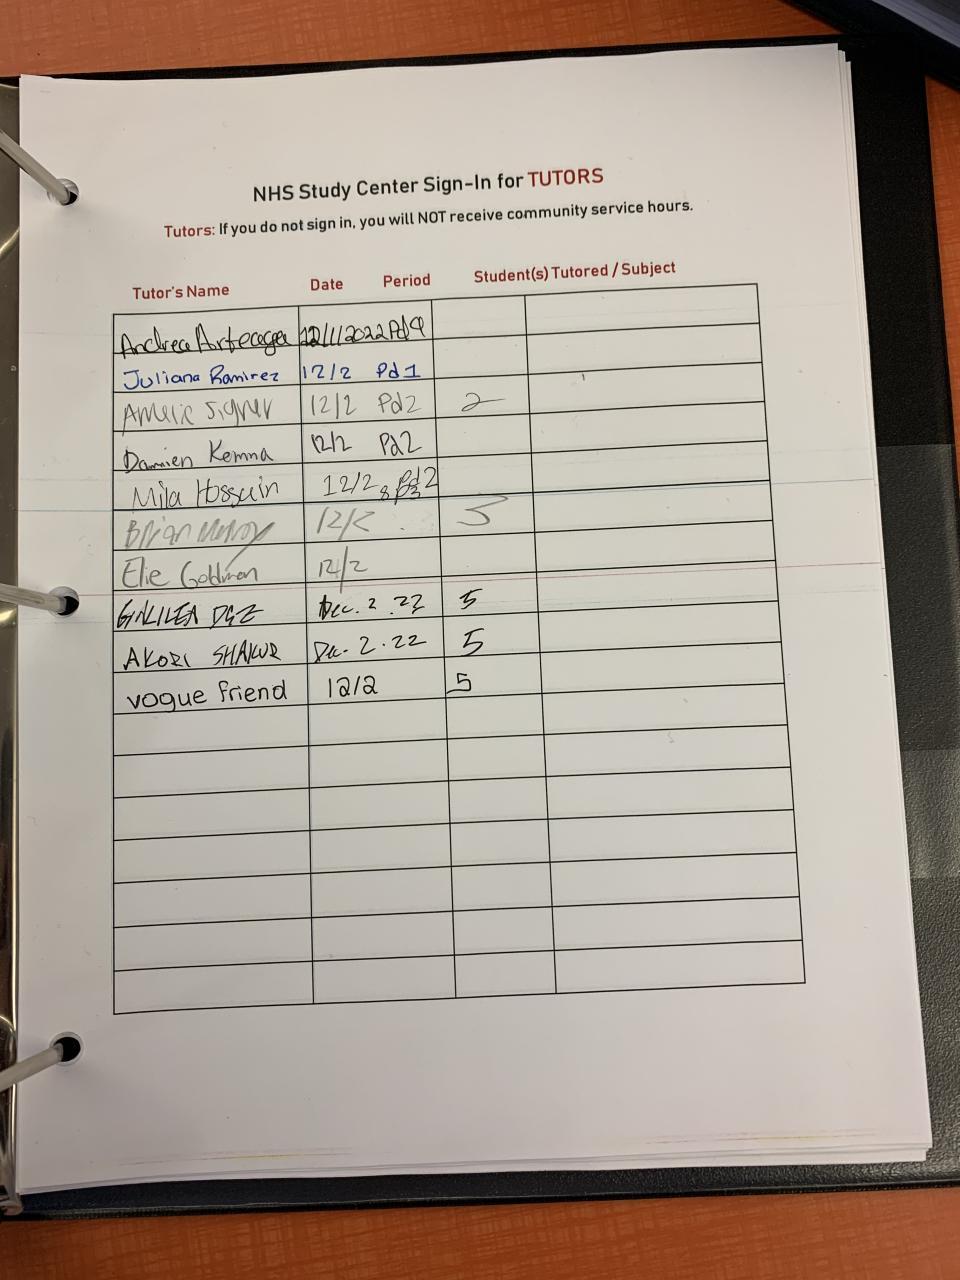 NHS Study Center Sign-In for TUTORS
Tutors: If you do not sign in, you will NOT receive community service hours.
Tutor's Name Date Period Student(s) Tutored / Subject
Andrea Arteaga 12/1/2022 Pd9
Juliana Ramirez 12/2 Pd1
12/2 Pd2 2
Damien Kemna 12/2 Pd2
Mila Hossain 12/2 Pd2
Brian 12/2 5
Elie Goldman 12/2
Dec. 2 . 22 5
AKORI SHAKUR Dec. 2 . 22 5
vogue friend 12/2 5